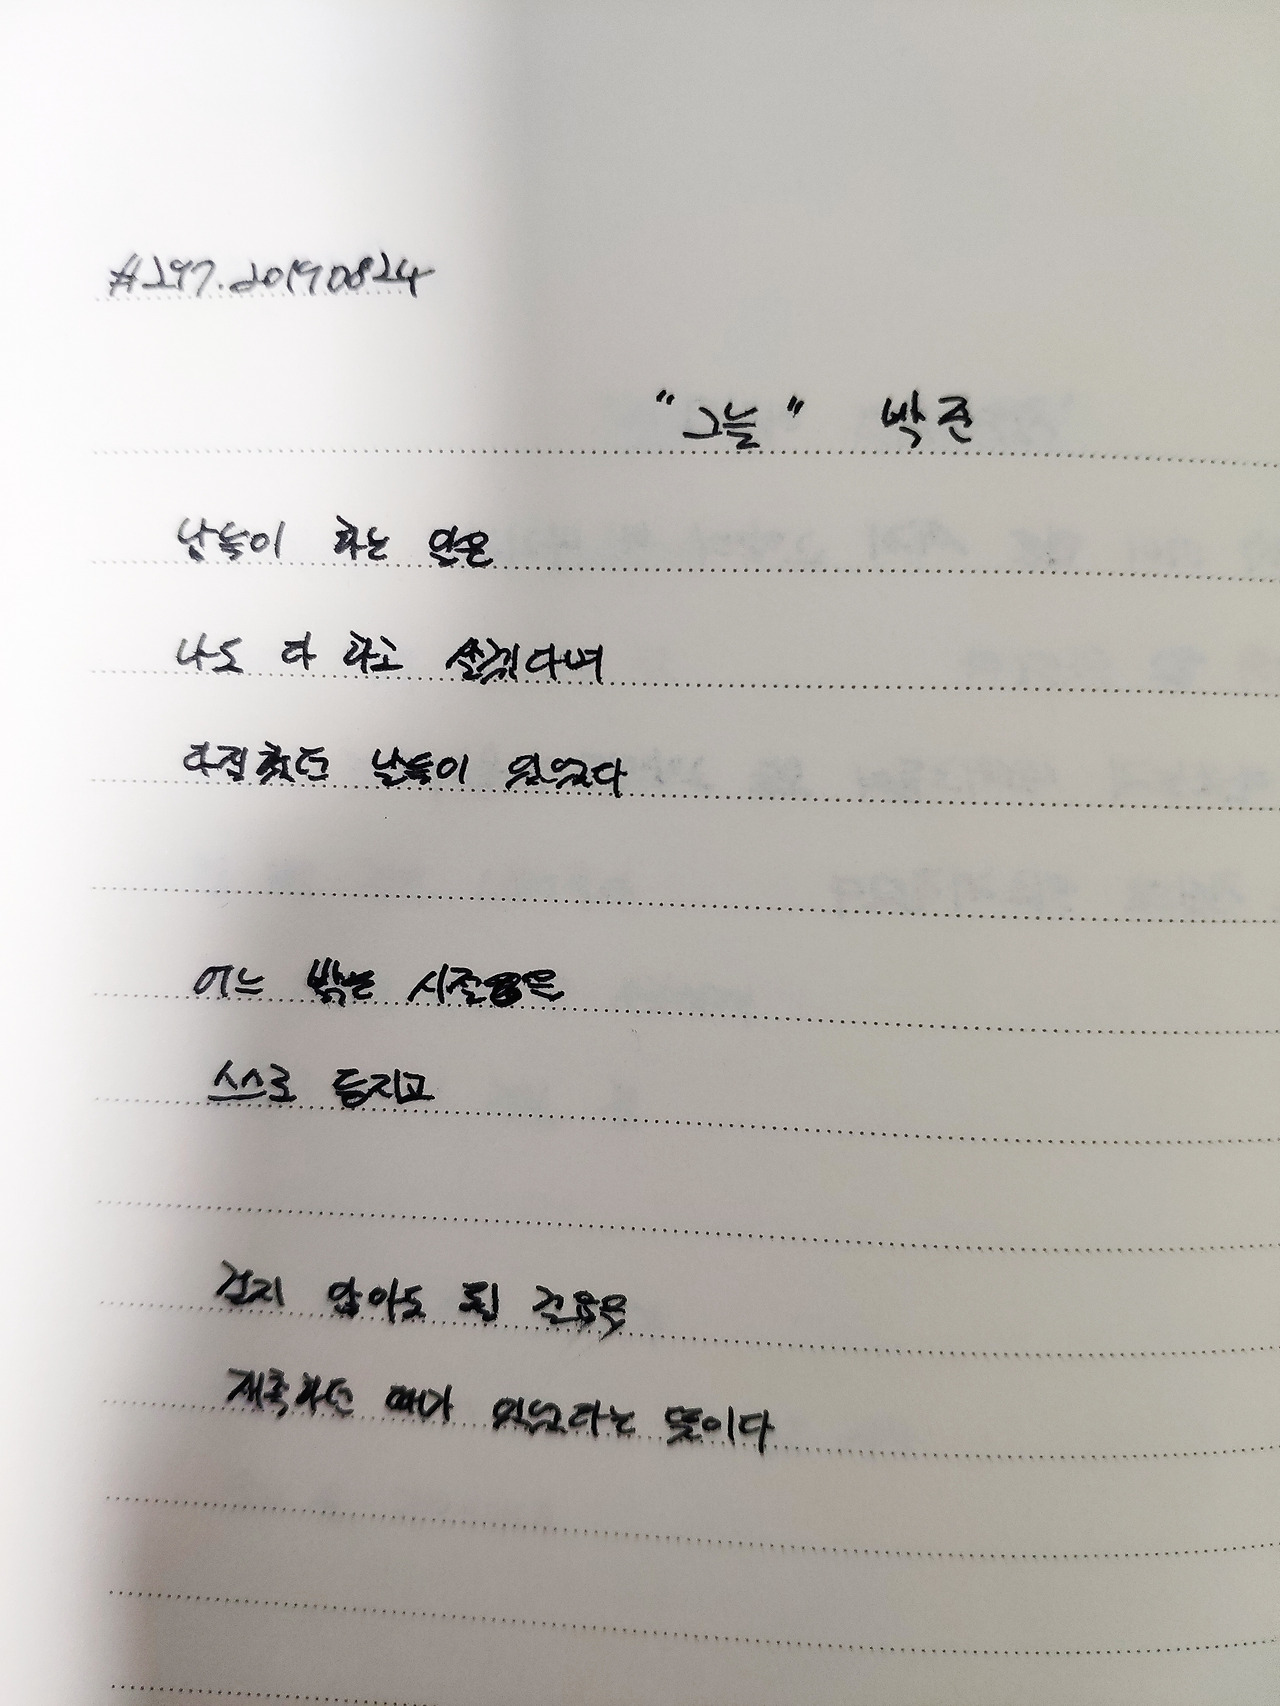 #297.20190824
"그늘" 박준
남들이 하는 일은
나도 다 하고 살겠다며
다짐했던 날들이 있었다
어느 밝은 시절을
스스로 등지고
걷지 않아도 될 걸음을
재촉하던 때가 있었다는 뜻이다